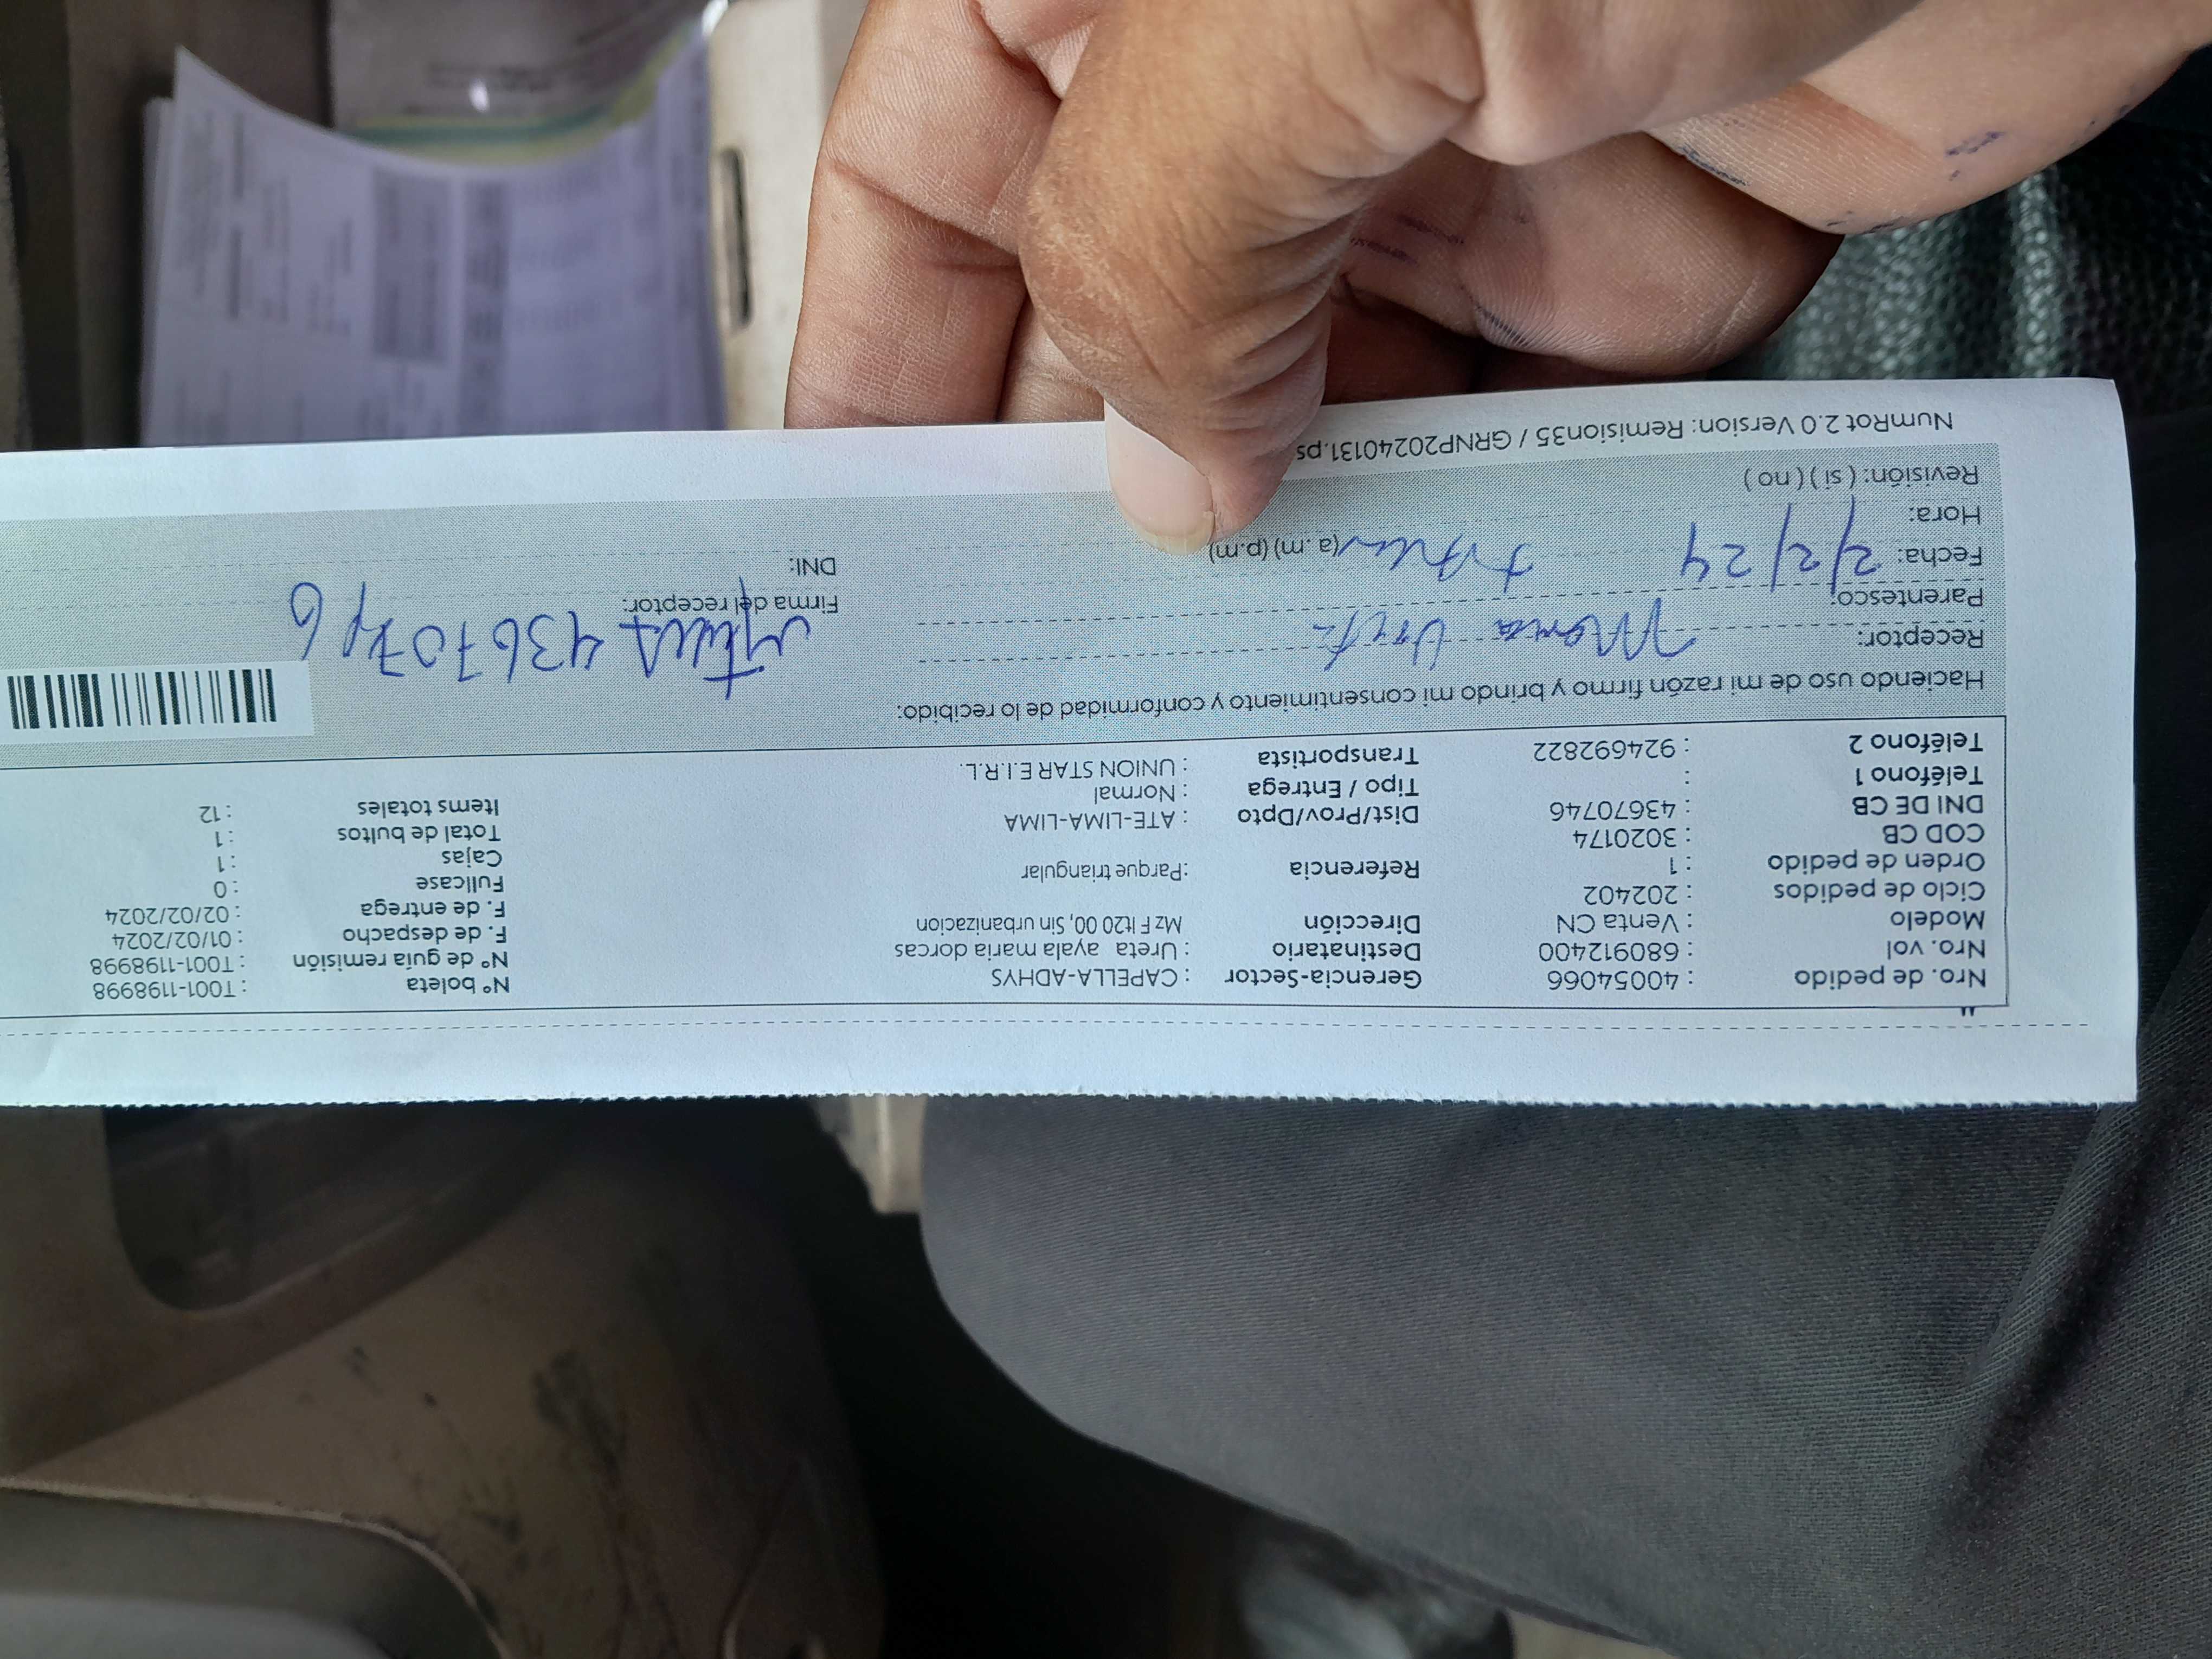 Nro. de pedido : 40054066 Gerencia-Sector : CAPELLA-ADHYS N° boleta : T001-1198998
Nro. vol : 680912400 Destinatario : Ureta ayala maria dorcas N° de guía remisión : T001-1198998
Modelo : Venta CN Dirección Mz F lt20 00, Sin urbanizacion F. de despacho : 01/02/2024
Ciclo de pedidos : 202402 F. de entrega : 02/02/2024
Orden de pedido : 1 Referencia : Parque triangular Fullcase : 0
COD CB : 3020174 Cajas : 1
DNI DE CB : 43670746 Dist/Prov/Dpto : ATE-LIMA-LIMA Total de bultos : 1
Teléfono 1 : Tipo / Entrega : Normal Items totales : 12
Teléfono 2 : 924692822 Transportista : UNION STAR E.I.R.L.
Haciendo uso de mi razón firmo y brindo mi consentimiento y conformidad de lo recibido:
Receptor: Maria Ureta
Parentesco: Firma del receptor:
Fecha: 2/2/24 DNI:
Hora: (a.m) (p.m)
Revisión: ( si ) ( no )
NumRot 2.0 Version: Remision35 / GRNP20240131.ps